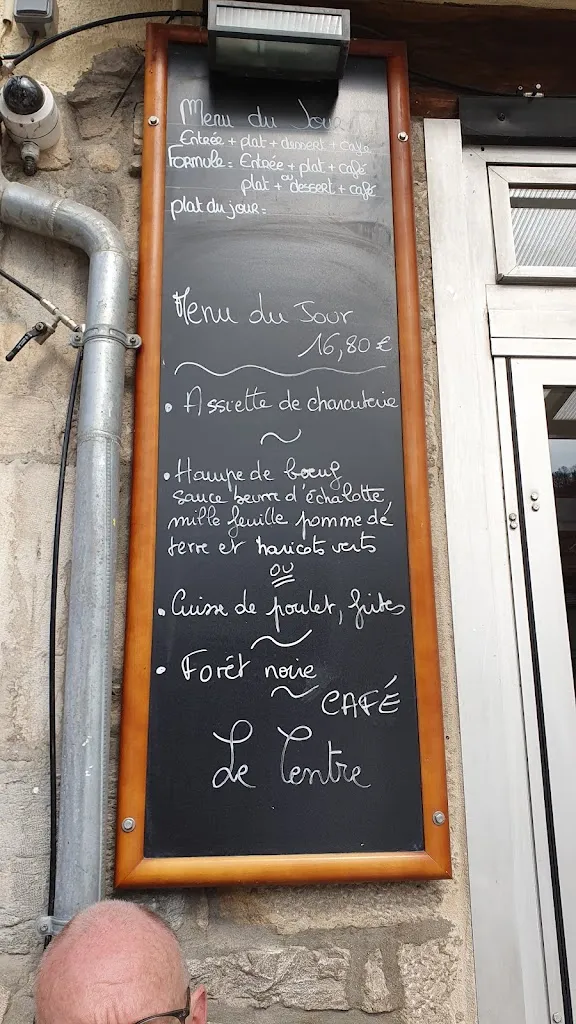 Menu du Jour
Entrée + plat + dessert + café
Formule = Entrée + plat + café
ou
plat + dessert + café
plat du jour =
Menu du Jour
16,80 €
• Assiette de charcuterie
• Hampe de boeuf
sauce beurre d'échalotte,
mille feuille pomme de
terre et haricots verts
ou
• Cuisse de poulet, frites
• Forêt noire
CAFÉ
Le Centre